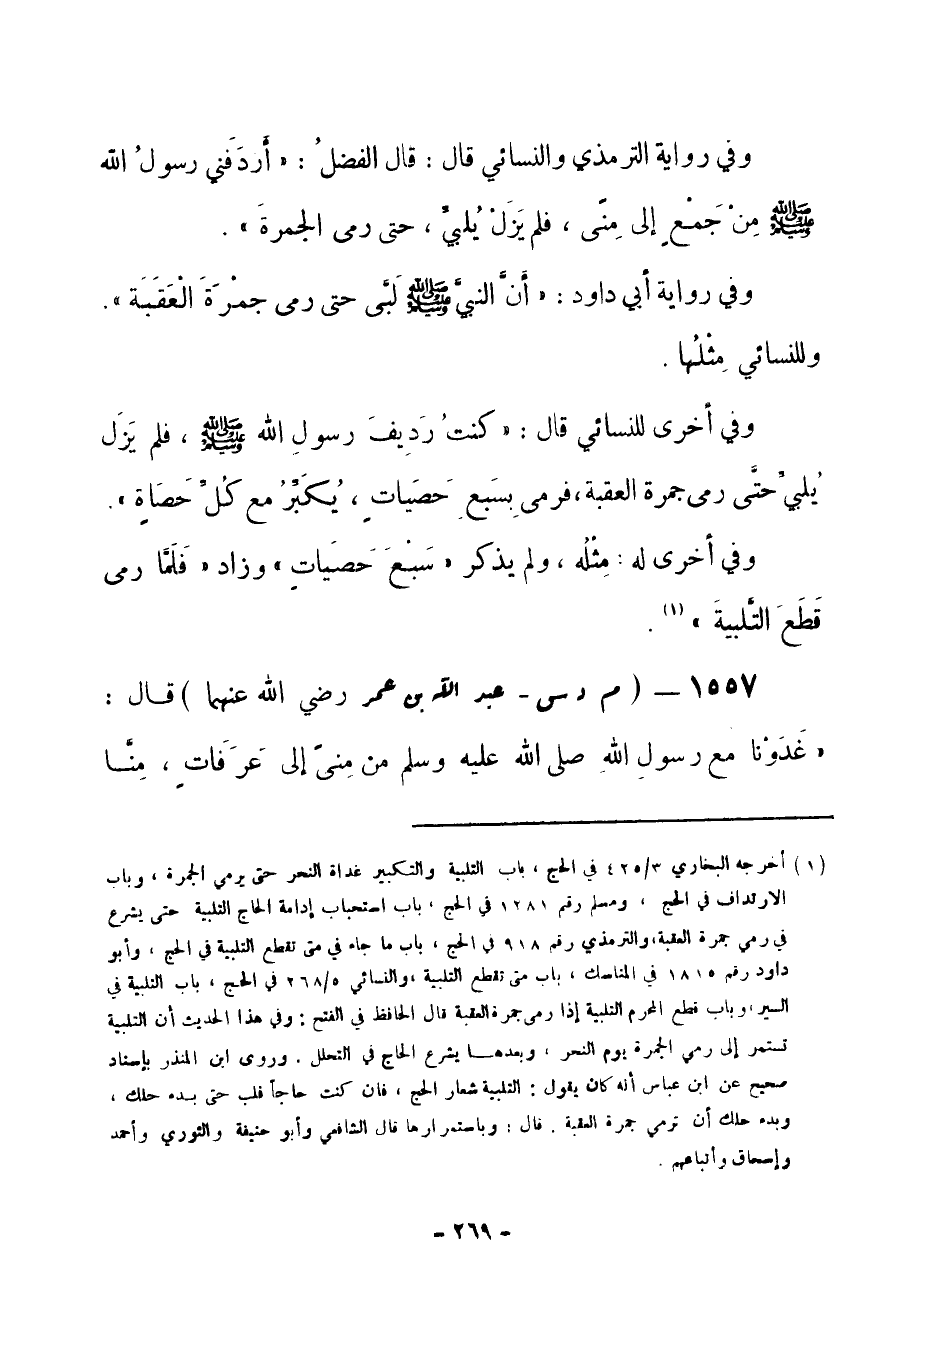 وفي رواية الترمذي والنسائي قال : قال الفضلُ : « أَردَفني رسولُ الله
ﷺ مِنْ جَمْعٍ إلى مِنًى ، فلم يَزَلْ يُلبيِّ ، حتى رمى الجمرةَ » .
وفي رواية أبي داود : « أَنَّ النبيَّ ﷺ لَبَّى حتى رمى جمْرَةَ الْعَقَبَة » .
وللنسائي مِثْلُها .
وفي أخرى للنسائي قال : « كنتُ رَدِيفَ رسولِ الله ﷺ ، فلم يَزَل
يُلبيِّ حتَّى رمى جمرة العقبة ، فرمى بِسَبعِ حَصَياتٍ ، يُكَبِّرُ مع كُلِّ حَصَاةٍ » .
وفي أخرى له : مِثْلُه ، ولم يذكر « سَبْعَ حَصَياتٍ » وزاد « فَلَمَّا رمى
قَطَعَ التَّلبيةَ » (١) .
١٥٥٧ – ( م د س - عبد الله بن عمر رضي الله عنهما ) قال :
« غَدَوْنا مع رسولِ اللهِ صلى الله عليه وسلم من مِنىً إلى عَرَفَاتٍ ، مِنَّا
(١) أخرجه البخاري ٤٢٥/٣ في الحج ، باب التلبية والتكبير غداة النحر حتى يرمي الجمرة ، وباب
الارتداف في الحج ، ومسلم رقم ١٢٨١ في الحج ، باب استحباب إدامة الحاج التلبية حتى يشرع
في رمي جمرة العقبة ، والترمذي رقم ٩١٨ في الحج ، باب ما جاء في متى تقطع التلبية في الحج ، وأبو
داود رقم ١٨١٥ في المناسك ، باب متى تقطع التلبية ، والنسائي ٢٦٨/٥ في الحج ، باب التلبية في
السير ، وباب قطع المحرم التلبية إذا رمى جمرة العقبة قال الحافظ في الفتح : وفي هذا الحديث أن التلبية
تستمر إلى رمي الجمرة يوم النحر ، وبعدها يشرع الحاج في التحلل . وروى ابن المنذر بإسناد
صحيح عن ابن عباس أنه كان يقول : التلبية شعار الحج ، فان كنت حاجاً فلب حتى بدء حلك ،
وبدء حلك أن ترمي جمرة العقبة . قال : وباستمرارها قال الشافعي وأبو حنيفة والثوري وأحمد
وإسحاق وأتباعهم .
- ٢٦٩ -